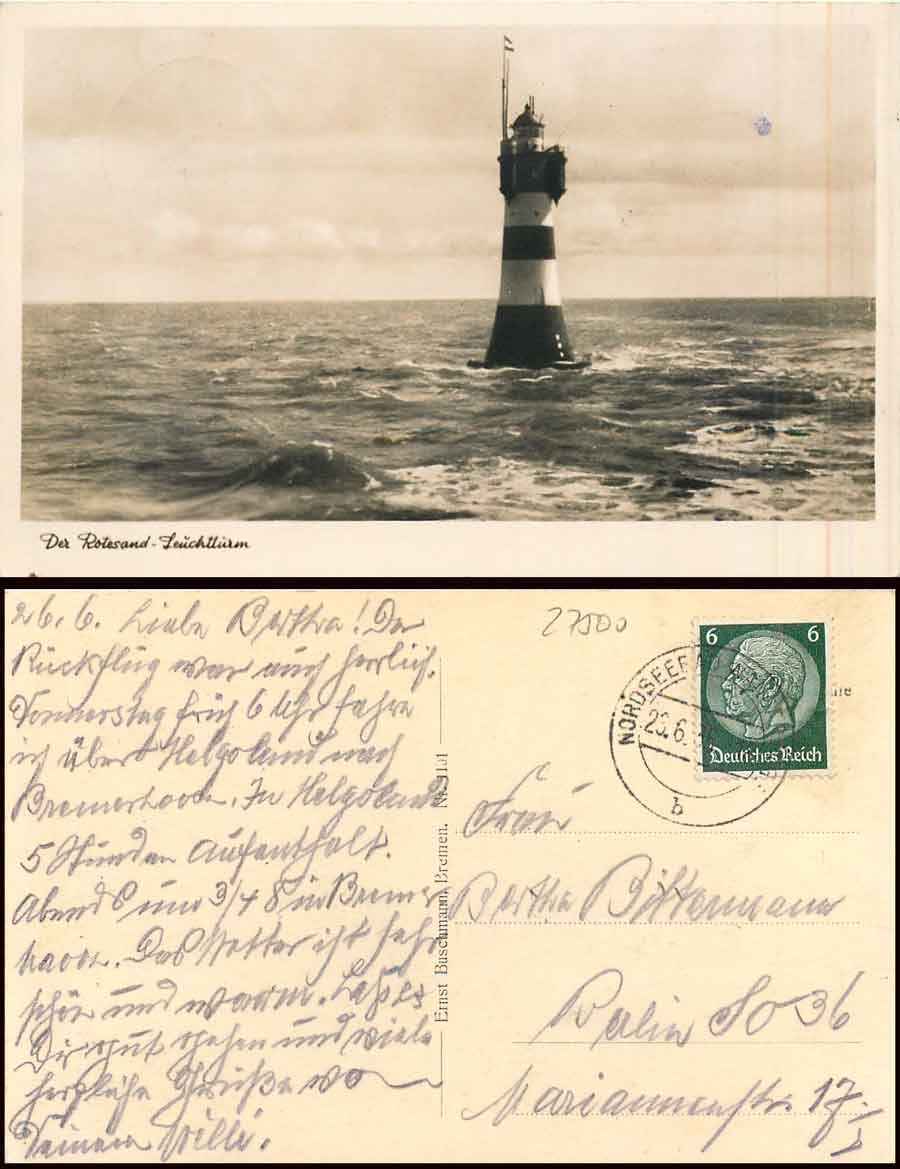 Der Rotesand-Leuchtturm
26.6. Liebe Bertha! Der
Rückflug war auch herrlich.
Donnerstag früh 6 Uhr fahre
ich über Helgoland nach
Bremerhaven. In Helgoland
5 Stunden Aufenthalt.
Abends um 3/4 8 in Bremer
haven. Das Wetter ist sehr
schön und warm. Laß es
Dir gut gehen und viele
herzliche Grüße von
Deinem Willi.
Ernst Buschmann, Bremen.
27500
NORDSEEB
26.6.
b
6 6
Deutsches Reich
Frau
Bertha Böttermann
Berlin SO 36
Mariannenstr. 17
I